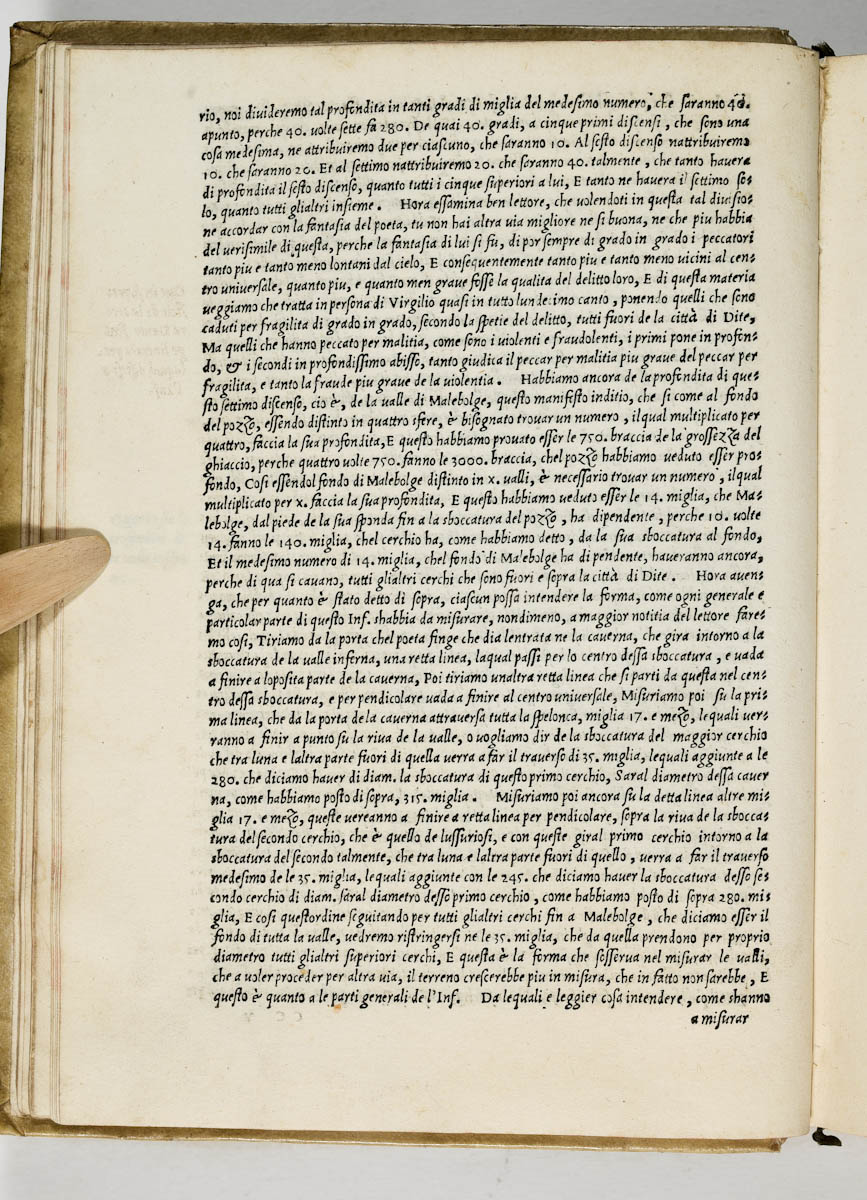 rio, noi divideremo tal profondita in tanti gradi di miglia del medesimo numero, che saranno 40.
apunto, perche 40. volte sette fa 280. De quai 40. gradi, a cinque primi discensi, che sono una
cosa medesima, ne attribuiremo due per ciascuno, che saranno 10. Al sesto discenso nattribuiremo
10. che saranno 20. Et al settimo nattribuiremo 20. che saranno 40. talmente, che tanto hauera
di profondita il sesto discenso, quanto tutti i cinque superiori a lui, E tanto ne hauera il settimo so-
lo, quanto tutti glialtri insieme. Hora essamina ben lettore, che volendoti in questa tal diuisio-
ne accordar con la fantasia del poeta, tu non hai altra via migliore ne si buona, ne che piu habbia
del verisimile di questa, perche la fantasia di lui si fu, di por sempre di grado in grado i peccatori
tanto piu e tanto meno lontani dal cielo, E consequentemente tanto piu e tanto meno vicini al cen-
tro uniuersale, quanto piu, e quanto men graue fosse la qualita del delitto loro, E di questa materia
veggiamo che tratta in persona di Virgilio quasi in tutto lundecimo canto, ponendo quelli che sono
caduti per fragilita di grado in grado, secondo la spetie del delitto, tutti fuori de la città di Dite,
Ma quelli che hanno peccato per malitia, come sono i violenti e fraudolenti, i primi pone in profon-
do, & i secondi in profondissimo abisso, tanto giudica il peccar per malitia piu graue del peccar per
fragilita, e tanto la fraude piu graue de la violentia. Habbiamo ancora de la profondita di que-
sto settimo discenso, cio è, de la valle di Malebolge, questo manifesto inditio, che si come al fondo
del pozzo, essendo distinto in quattro sfere, è bisognato trouar un numero, ilqual multiplicato per
quattro, faccia la sua profondita, E questo habbiamo prouato esser le 750. braccia de la grossezza del
ghiaccio, perche quattro volte 750. fanno le 3000. braccia, chel pozzo habbiamo veduto esser pro-
fondo, Cosi essendol fondo di Malebolge distinto in x. valli, è necessario trouar un numero, ilqual
multiplicato per x. faccia la sua profondita, E questo habbiamo veduto esser le 14. miglia, che Ma-
lebolge, dal piede de la sua sponda fin a la sboccatura del pozzo, ha dipendente, perche 10. volte
14. fanno le 140. miglia, chel cerchio ha, come habbiamo detto, da la sua sboccatura al fondo,
Et il medesimo numero di 14. miglia, chel fondo di Malebolge ha di pendente, haueranno ancora,
perche di qua si cauano, tutti glialtri cerchi che sono fuori e sopra la città di Dite. Hora auen-
ga, che per quanto è stato detto di sopra, ciascun possa intendere la forma, come ogni generale e
particolar parte di questo Inf. shabbia da misurare, nondimeno, a maggior notitia del lettore fare-
mo cosi, Tiriamo da la porta chel poeta finge che dia lentrata ne la cauerna, che gira intorno a la
sboccatura de la valle inferna, una retta linea, laqual passi per lo centro dessa sboccatura, e vada
a finire a loposita parte de la cauerna, Poi tiriamo unaltra retta linea che si parti da questa nel cen-
tro dessa sboccatura, e per pendicolare vada a finire al centro uniuersale, Misuriamo poi su la pri-
ma linea, che da la porta de la cauerna attrauersa tutta la spelonca, miglia 17. e mezo, lequali ver-
ranno a finir a punto su la riua de la valle, o vogliamo dir de la sboccatura del maggior cerchio
che tra luna e laltra parte fuori di quella verra a far il trauerso di 35. miglia, lequali aggiunte a le
280. che diciamo hauer di diam. la sboccatura di questo primo cerchio, Saral diametro dessa cauer
na, come habbiamo posto di sopra, 315. miglia. Misuriamo poi ancora su la detta linea altre mi-
glia 17. e mezo, queste vereanno a finire a retta linea per pendicolare, sopra la riua de la sbocca-
tura del secondo cerchio, che è quello de lussuriosi, e con queste giral primo cerchio intorno a la
sboccatura del secondo talmente, che tra luna e laltra parte fuori di quello, verra a far il trauerso
medesimo de le 35. miglia, lequali aggiunte con le 245. che diciamo hauer la sboccatura desso se-
condo cerchio di diam. saral diametro desso primo cerchio, come habbiamo posto di sopra 280. mi-
glia, E cosi questordine seguitando per tutti glialtri cerchi fin a Malebolge, che diciamo esser il
fondo di tutta la valle, vedremo ristringersi ne le 35. miglia, che da quella prendono per proprio
diametro tutti glialtri superiori cerchi, E questa è la forma che sesserua nel misurar le valli,
che a voler proceder per altra via, il terreno crescerebbe piu in misura, che in fatto non sarebbe, E
questo è quanto a le parti generali de l'Inf. Da lequali e leggier cosa intendere, come shanno
a misurar